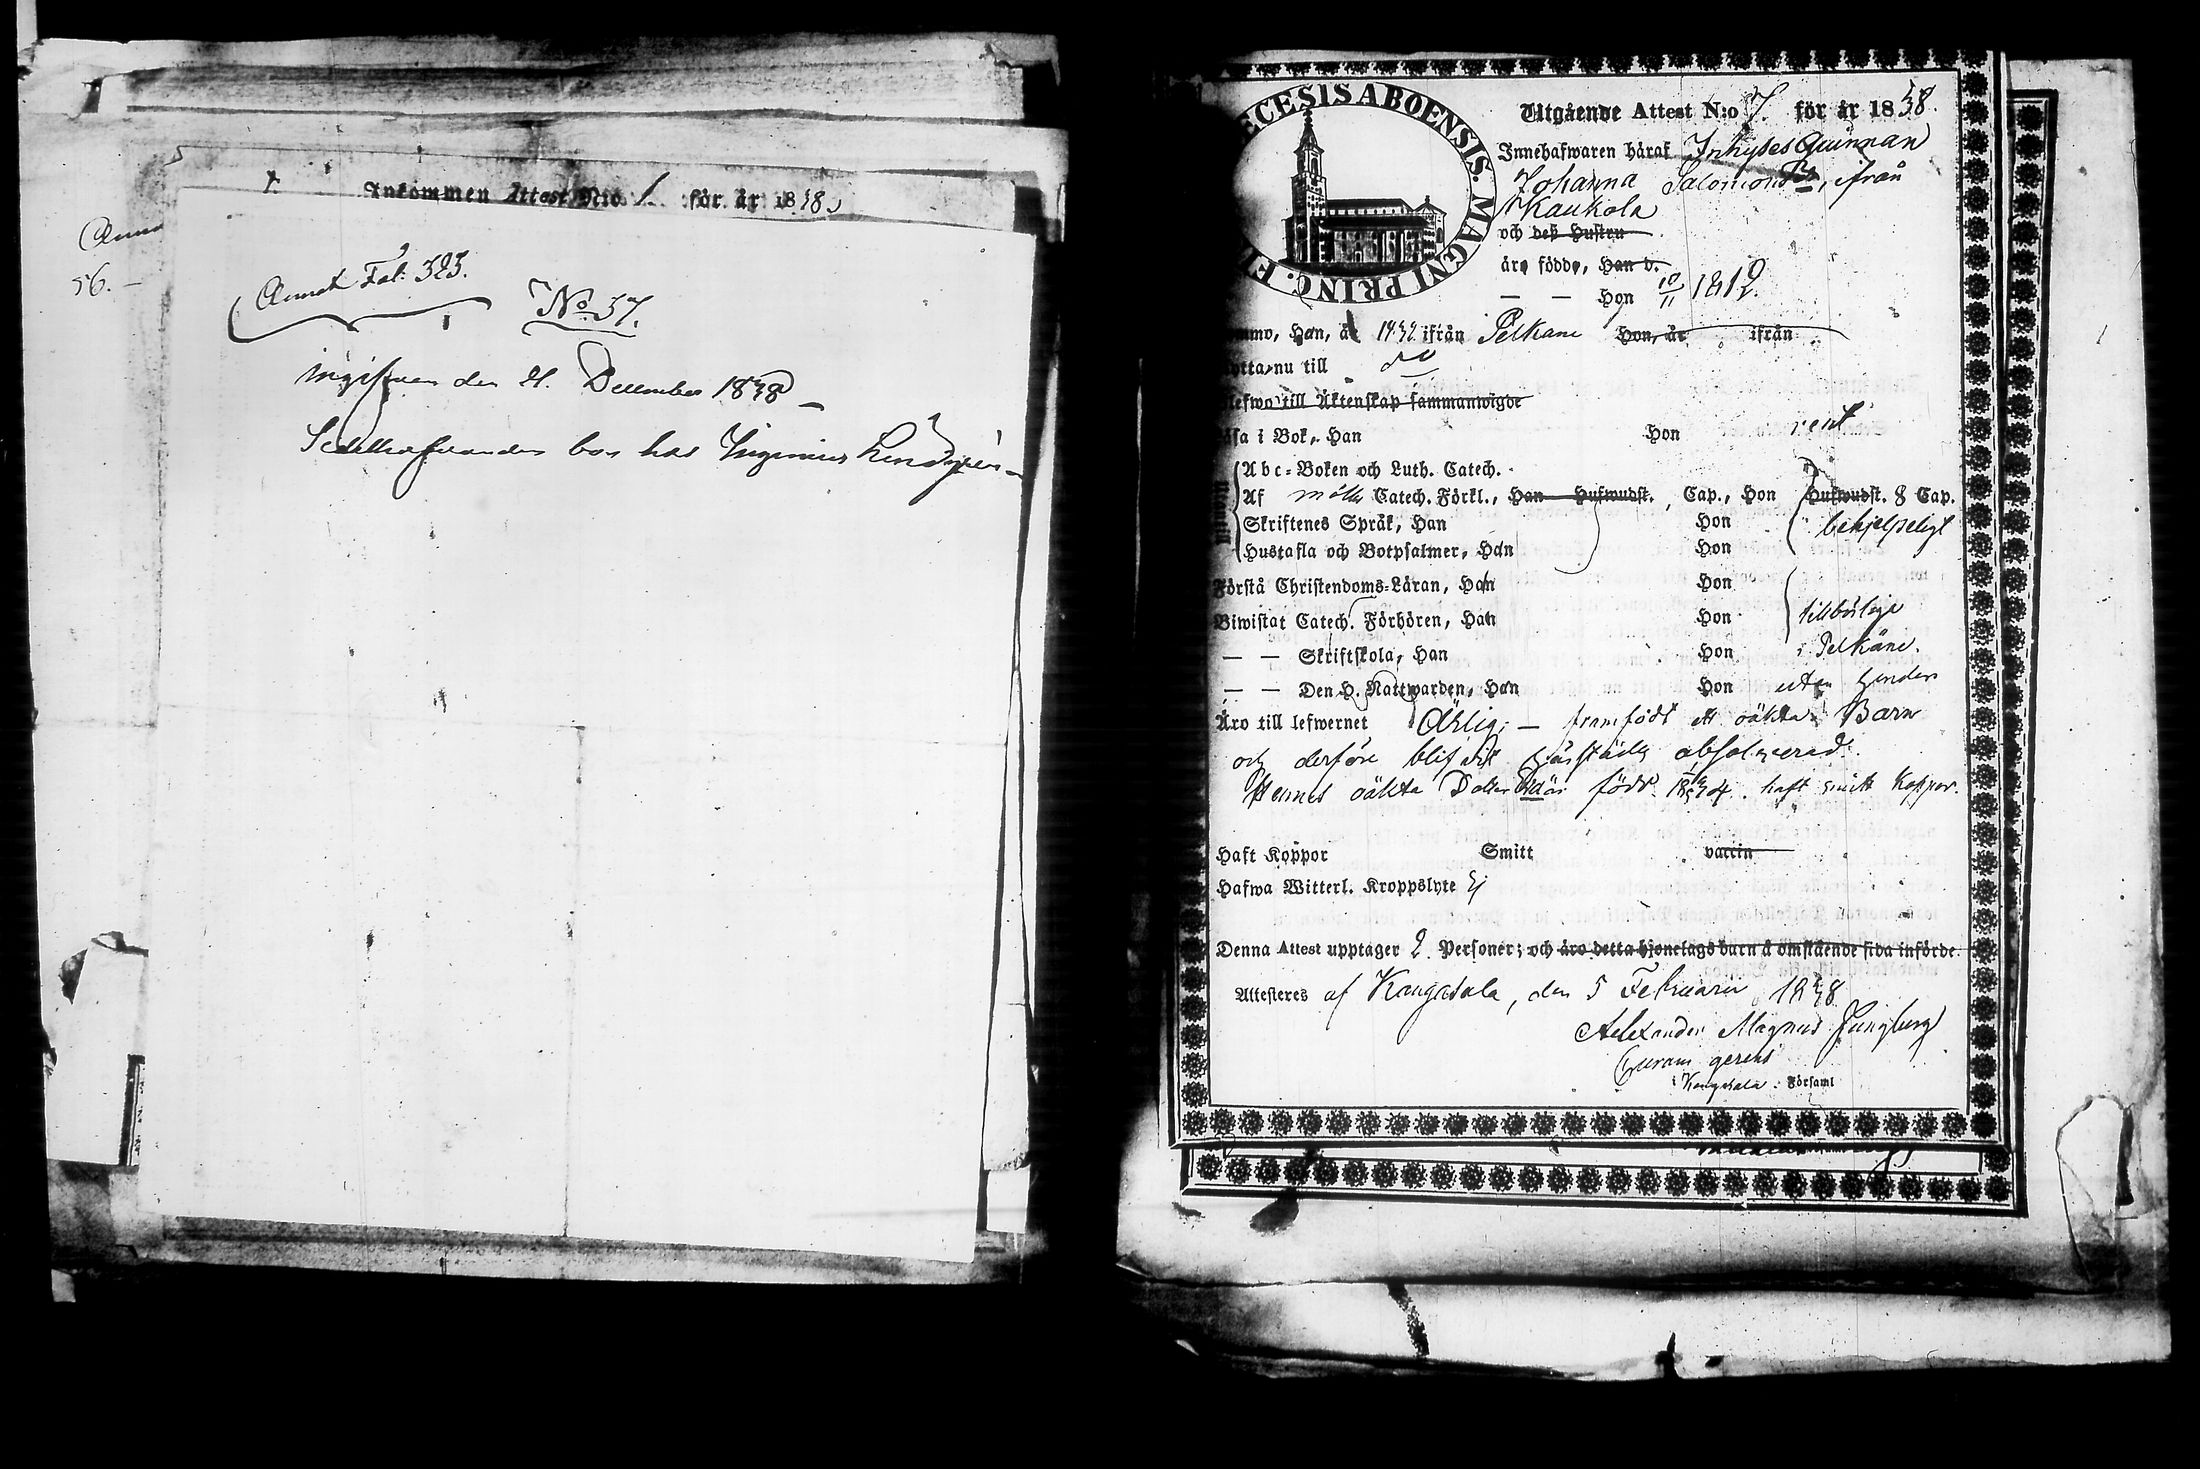 Inkommen Attest N:o 1. för år 1838.
56. —
Annot Fol: 323.
No 37.
ingifven den 21. December 1838 —
Sedelhafvanden bor hos
ECESIS ABOENSIS. MAGNI PRINC. FI
Utgående Attest N:o 7. för år 1838.
Innehafwaren häraf Inhyses Qvinnan
Johanna Salomons Dr, ifrån
Kaukola
och deß Hustru
äro födde, Han d.
— — Hon 10/11 1812.
Han, år 1832 ifrån Pelkäne Hon, år ifrån
nu till do
till Äktenskap sammanwigde
i Bok, Han Hon rent
Abc-Boken och Luth. Catech.
Af Catech. Förkl., Han Hufwudst. Cap., Hon Hufwudst. 8 Cap.
Skriftenes Språk, Han Hon behjelpeligt
Hustafla och Botpsalmer, Han Hon
Förstå Christendoms-Läran, Han Hon
Biwistat Catech. Förhören, Han Hon tillbörlige
— — Skriftskola, Han Hon i Pelkäne.
— — Den H. Nattwarden, Han Hon utan hinder
Äro till lefwernet ärlig; — framfödt ett oäkta Barn
och derföre blifvit absolverad.
Hennes oäkta Dotter född haft smitt koppor.
Haft Koppor Smitt vaccin
Hafwa Witterl. Kroppslyte Ej
Denna Attest upptager 2 Personer; och äro detta hjonelags barn å omstående sida införde.
Attesteres af Kangasala, den 5 Februarii 1838
Alexander Magnus Ljungberg
Curam gerens
i Kangasala Församl